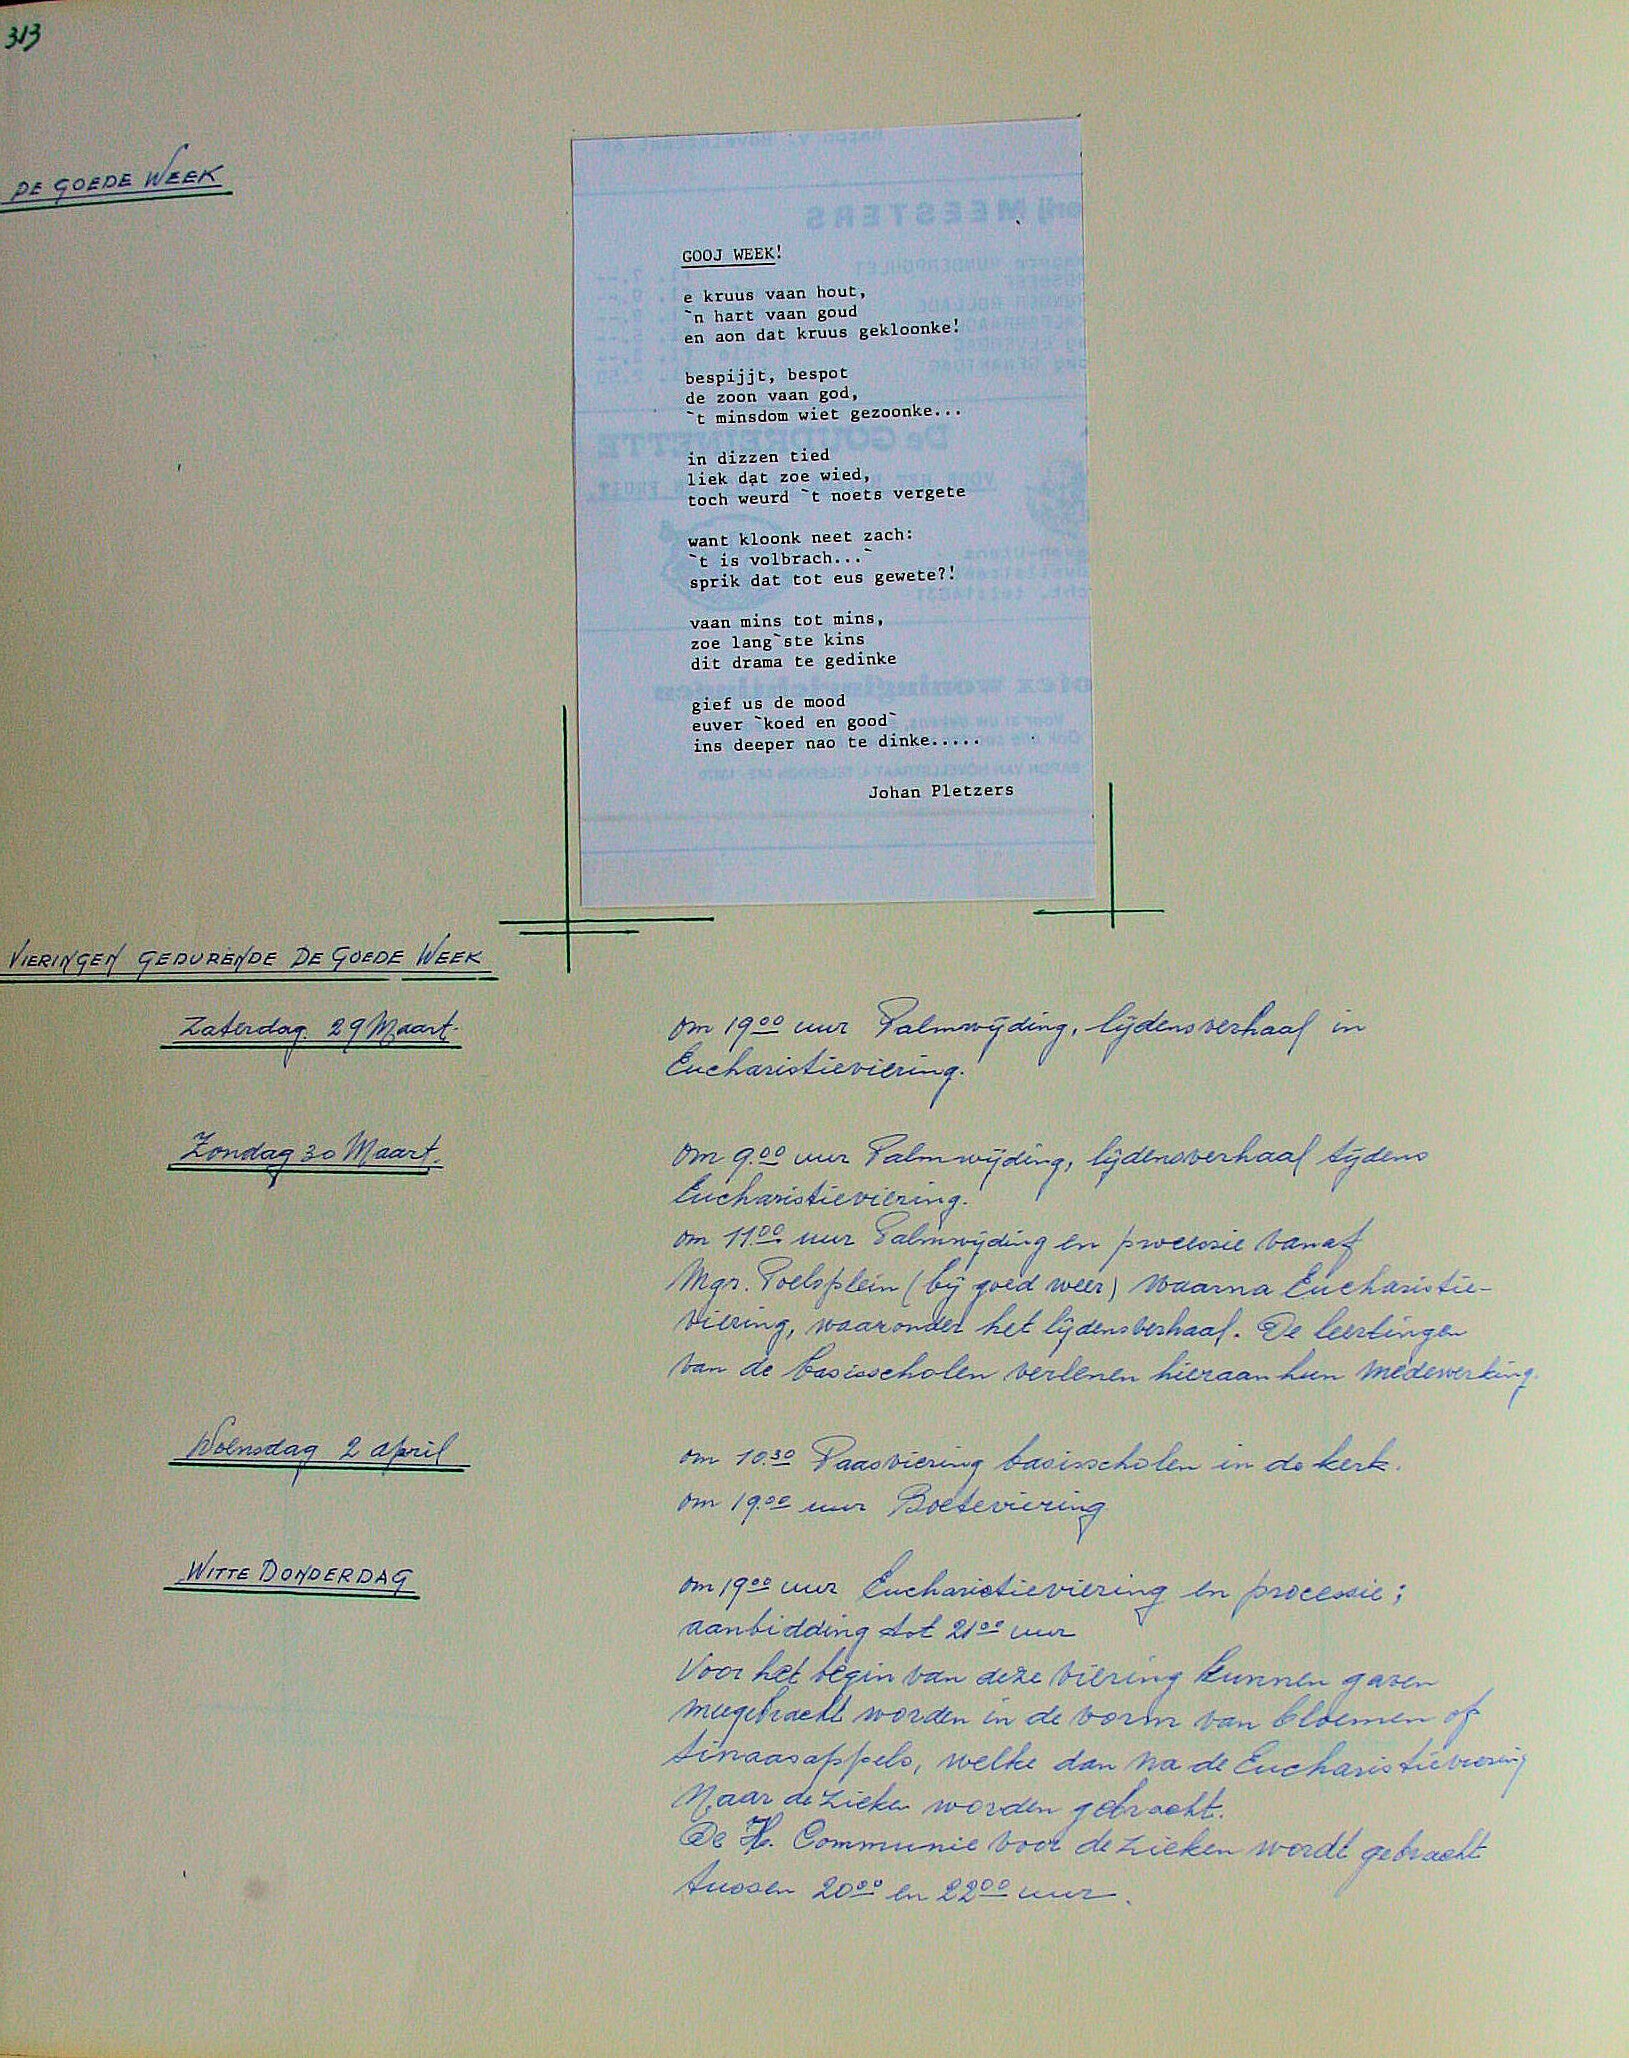 313
DE GOEDE WEEK
GOOJ WEEK!
e kruus vaan hout,
`n hart vaan goud
en aon dat kruus gekloonke!
bespijjt, bespot
de zoon vaan god,
`t minsdom wiet gezoonke...
in dizzen tied
liek dat zoe wied,
toch weurd `t noets vergete
want kloonk neet zach:
`t is volbrach...`
sprik dat tot eus gewete?!
vaan mins tot mins,
zoe lang`ste kins
dit drama te gedinke
gief us de mood
euver `koed en good`
ins deeper nao te dinke.....
Johan Pletzers
VIERINGEN GEDURENDE DE GOEDE WEEK
Zaterdag 29 Maart.
om 19.00 uur Palmwijding, lijdensverhaal in
Eucharistieviering.
Zondag 30 Maart.
om 9.00 uur Palmwijding, lijdensverhaal tijdens
Eucharistieviering.
om 11.00 uur Palmwijding en processie vanaf
Mgr. Poelsplein (bij goed weer) waarna Eucharistie-
viering, waaronder het lijdensverhaal. De leerlingen
van de basisscholen verlenen hieraan hun medewerking.
Woensdag 2 april
om 10.30 Paasviering basisscholen in de kerk.
om 19.00 uur Boeteviering
WITTE DONDERDAG
om 19.00 uur Eucharistieviering en processie;
aanbidding tot 21.00 uur
Voor het begin van deze viering kunnen gaven
meegebracht worden in de vorm van bloemen of
sinaasappels, welke dan na de Eucharistieviering
Naar de zieken worden gebracht.
De H. Communie voor de zieken wordt gebracht
tussen 20.00 en 22.00 uur.